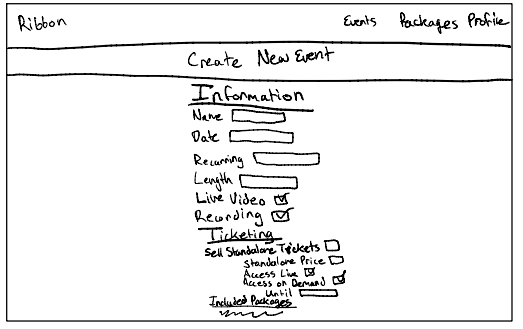 Ribbon Events Packages Profile
Create New Event
Information
Name
Date
Recurring
Length
Live Video
Recording
Ticketing
Sell Standalone Tickets
Standalone Price
Access Live
Access on Demand
Until
Included Packages